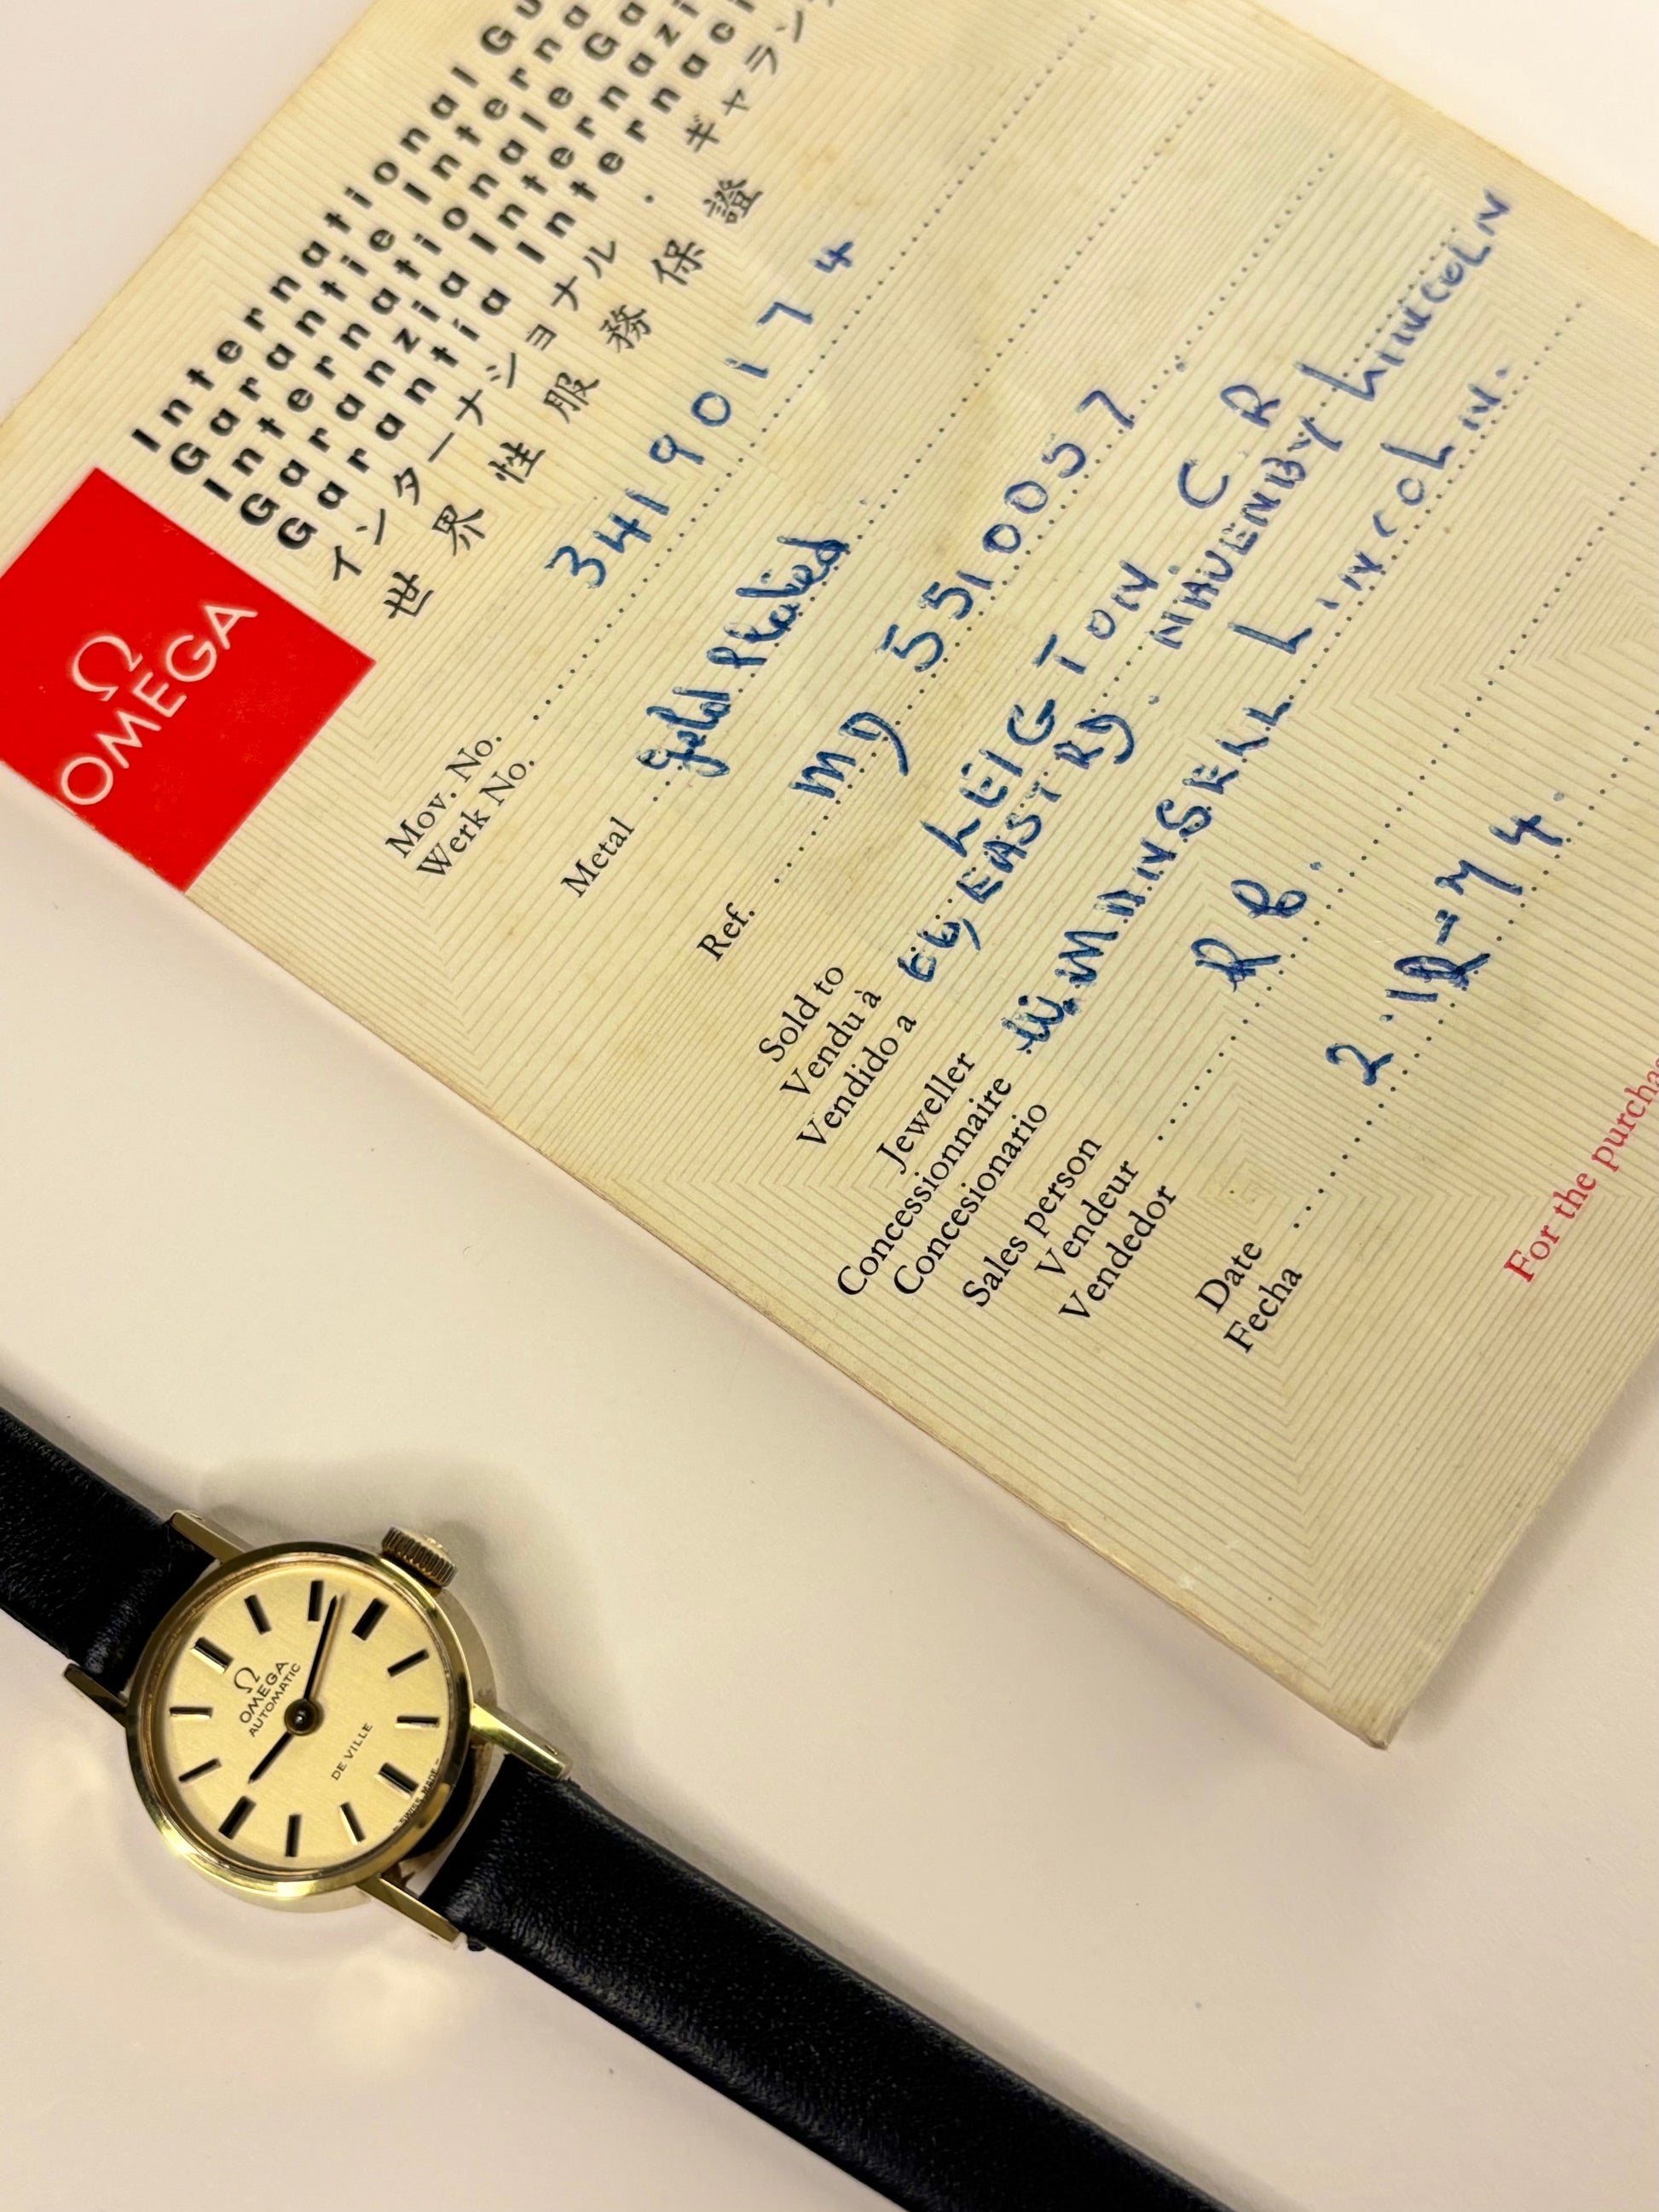 Ω
OMEGA
International Gu
Garantie Interna
International Ga
Garanzia Internazi
Garantía Internaci
インターナショナル・ギャラン
世界性服務保證
Mov. No. 34190174
Werk No.
Metal Gold Plated
Ref. MD 551005 7
Sold to LEIGTON C R
Vendu à EAST RD. NAVENBY LINCOLN
Vendido a
Jeweller
Concessionnaire W. MANSELL LINCOLN.
Concesionario
Sales person
Vendeur R B.
Vendedor
Date 2.12-74.
Fecha
For the purchas
Ω
OMEGA
AUTOMATIC
DE VILLE
SWISS MADE